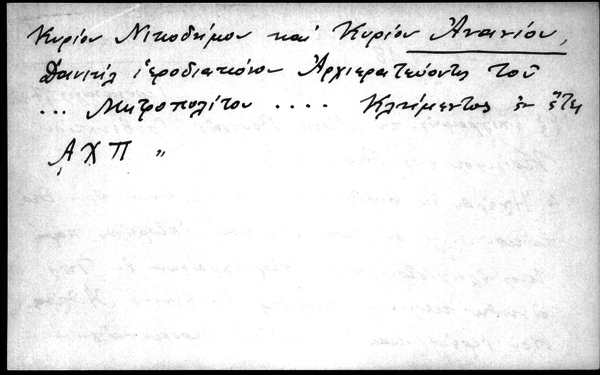 Κυρίου Νικοδήμου καὶ Κυρίου Ἀνανίου,
Δανιὴλ ἱεροδιακόνου Ἀρχιερατεύοντος τοῦ
... Μητροπολίτου .... Κλήμεντος ἐν ἔτει
ΑΧΠ "